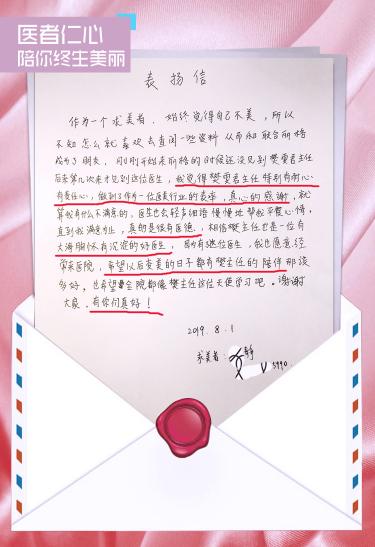 医者仁心
陪你终生美丽
表扬信
作为一个求美者，始终觉得自己不美，所以
不知怎么就喜欢去查阅一些资料从而和联合丽格
成为了朋友，刚刚开始来丽格的时候还没见到樊雪君主任
后来第几次来才见到这位医生，我觉得樊雪君主任特别有耐心
有责任心，做到了作为一位医美行业的表率，真心的感谢，就
算我有什么不满意的，医生也会轻声细语慢慢地帮我平复心情，
直到我满意为止，真的是很有医德，相信樊主任也是一位有
大海胸怀有沉淀的好医生，因为有这位医生，我也愿意经
常来医院，希望以后变美的日子都有樊主任的陪伴那该
多好，也希望全院都像樊主任这位天使学习吧。谢谢
大家。有你们真好！
2019.8.1
求美者：
静
V5990